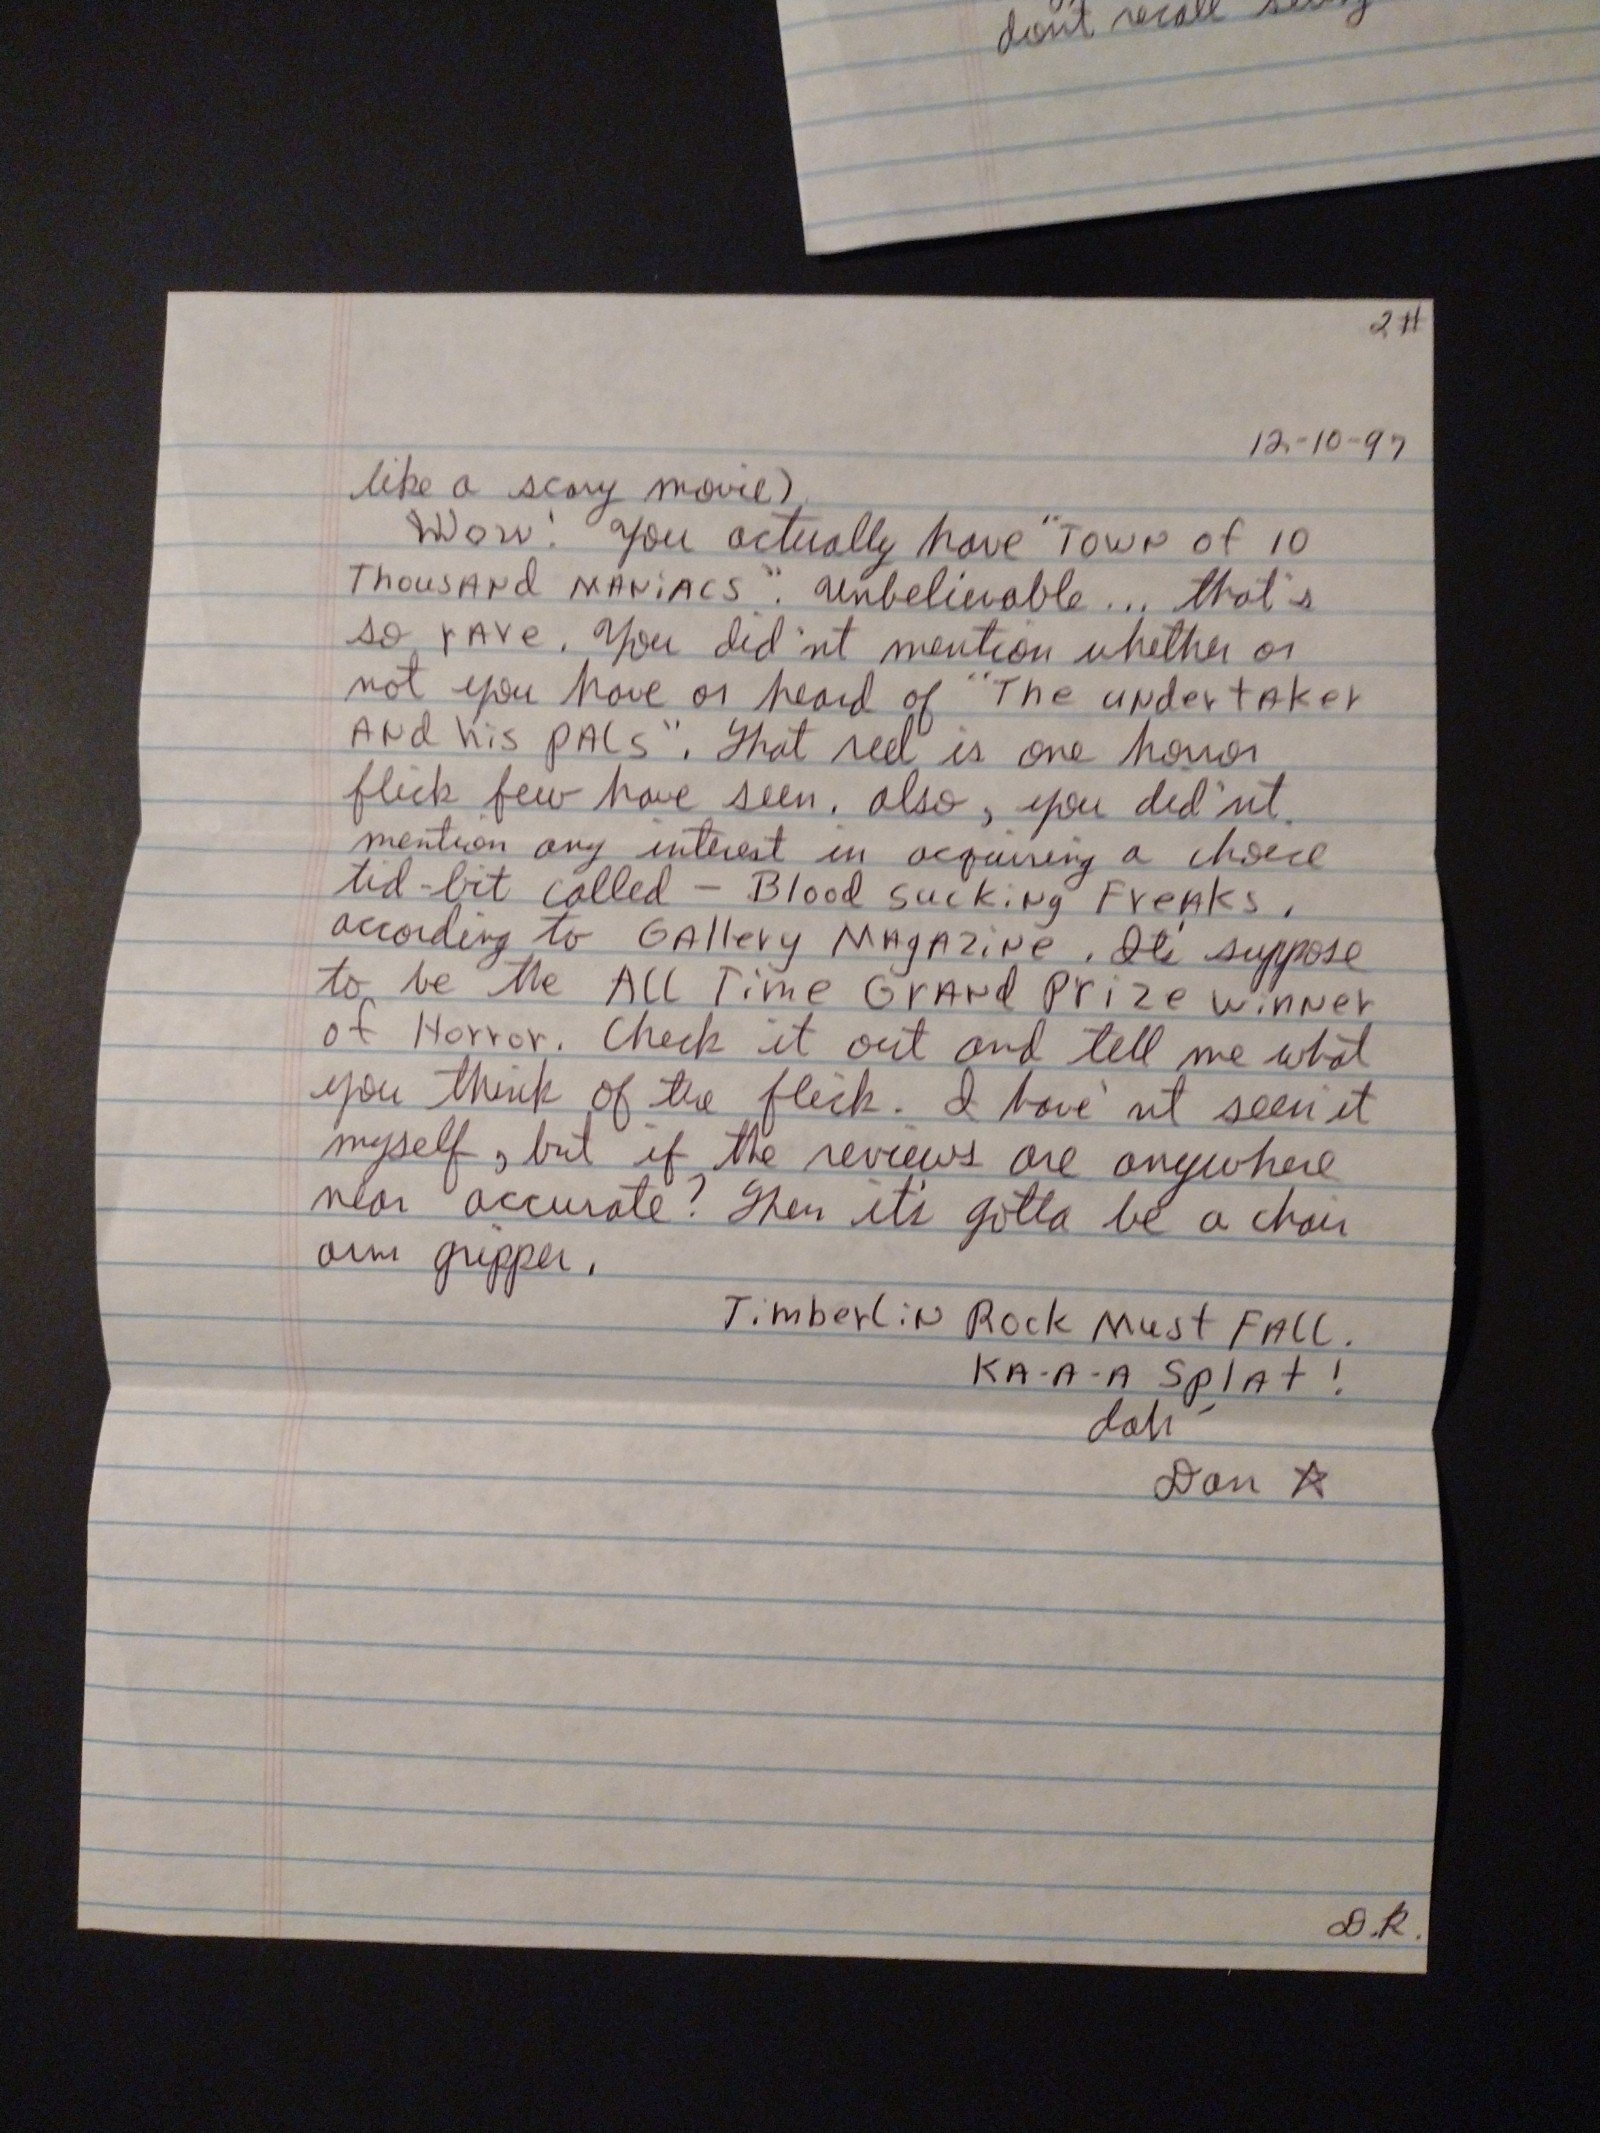 don't recall seeing
2#
12-10-97
like a scary movie).
Wow! You actually have "Town of 10
Thousand Maniacs". Unbelievable... that's
so rare. You did'nt mention whether or
not you have or heard of "The undertaker
And his PALs". That reel is one horror
flick few have seen. also, you did'nt
mention any interest in acquiring a choice
tid-bit called - Blood sucking Freaks,
according to Gallery Magazine. It's suppose
to be the All Time Grand Prize winner
of Horror. Check it out and tell me what
you think of the flick. I have'nt seen it
myself, but if the reviews are anywhere
near accurate? Then it's gotta be a chair
arm gripper.
Timberlin Rock Must FAll.
KA-A-A Splat!
dah
Dan ☆
D.R.